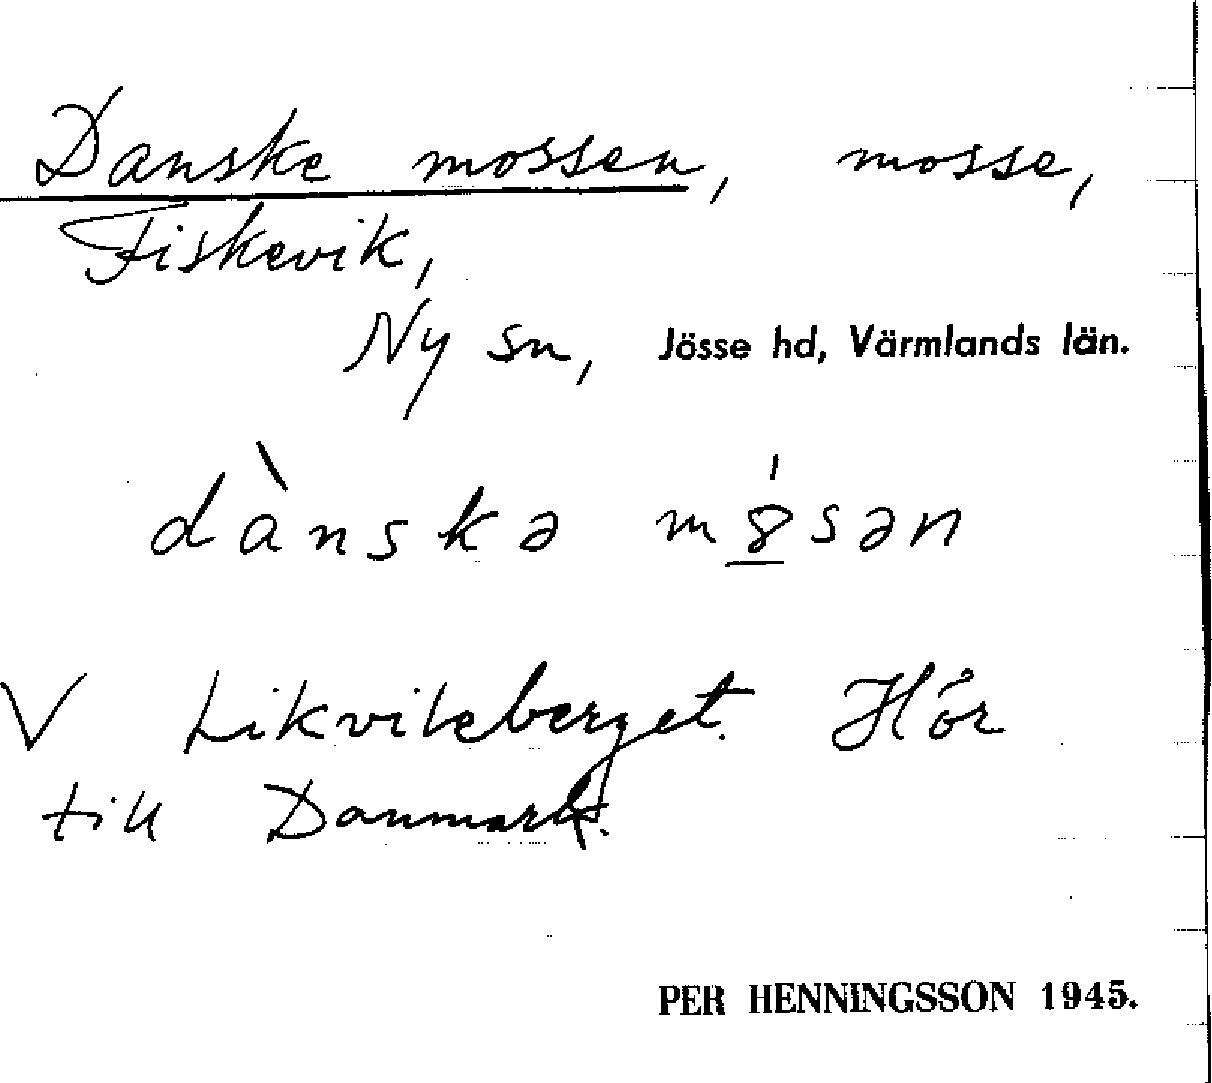 Danske mossen, mosse,
Fiskevik,
Ny sn, Jösse hd, Värmlands län.
dànskə mо̲́sən
V Likvileberget. Hör
till Danmark.
PER HENNINGSSON 1945.